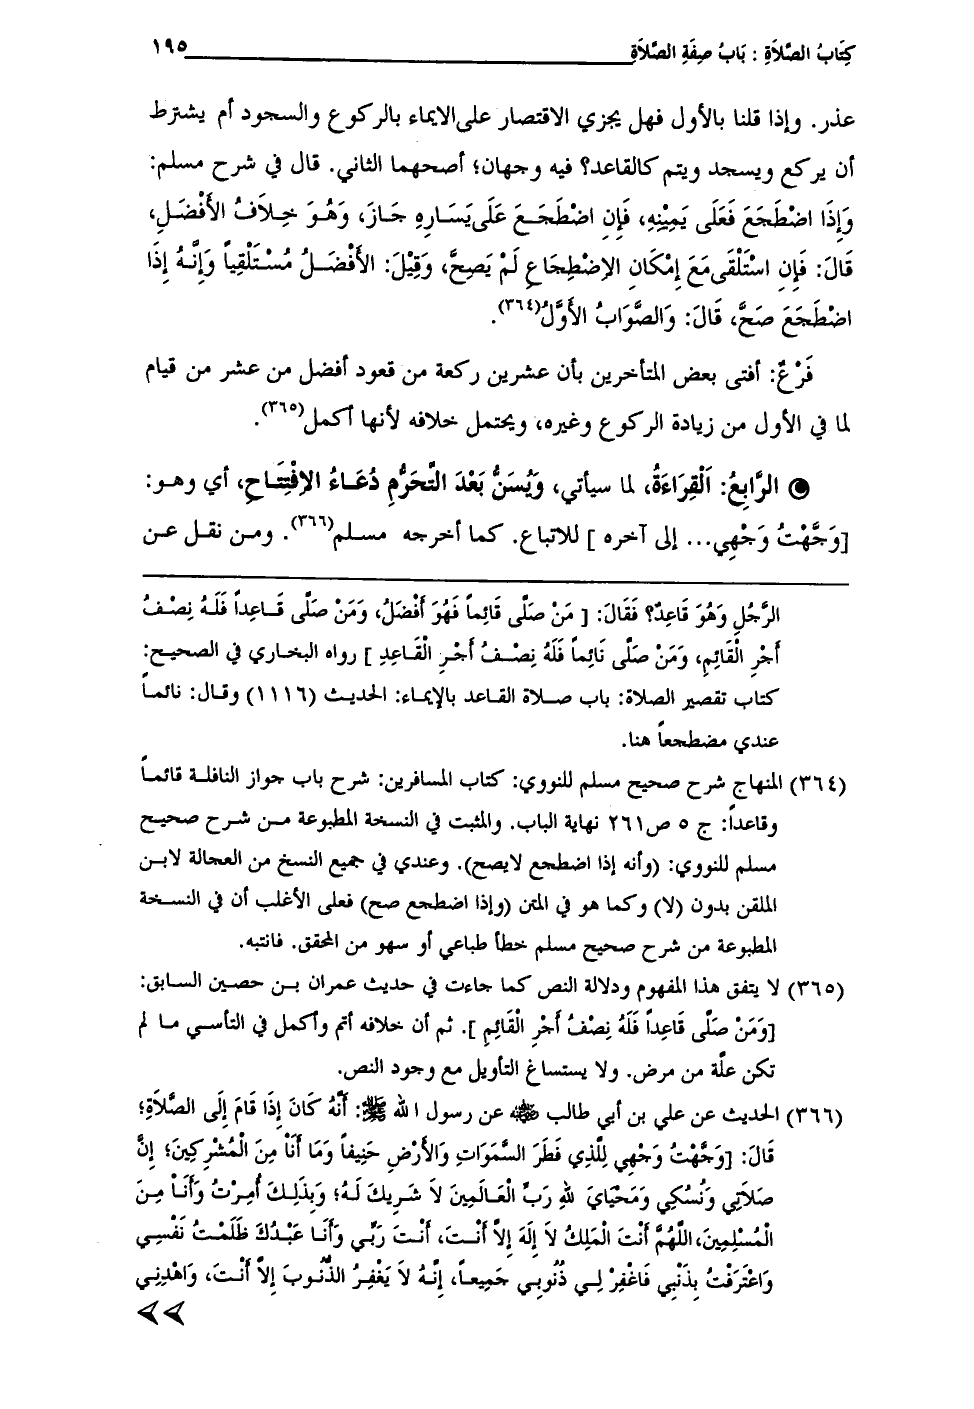 كِتَابُ الصَّلاَةِ : بَابُ صِفَةِ الصَّلاَةِ ١٩٥
عذر. وإذا قلنا بالأول فهل يجزي الاقتصار على الايماء بالركوع والسجود أم يشترط
أن يركع ويسجد ويتم كالقاعد؟ فيه وجهان؛ أصحهما الثاني. قال في شرح مسلم:
وَإِذَا اضْطَجَعَ فَعَلَى يَمِيْنِهِ، فَإِنِ اضْطَجَعَ عَلَى يَسَارِهِ جَازَ، وَهُوَ خِلاَفُ الأَفْضَلِ،
قَالَ: فَإِنِ اسْتَلْقَى مَعَ إِمْكَانِ الاِضْطِجَاعِ لَمْ يَصِحَّ، وَقِيْلَ: الأَفْضَلُ مُسْتَلْقِياً وَإِنَّهُ إِذَا
اضْطَجَعَ صَحَّ، قَالَ: وَالصَّوَابُ الأَوَّلُ(٣٦٤).
فَرْعٌ: أفتى بعض المتأخرين بأن عشرين ركعة من قعود أفضل من عشر من قيام
لما في الأول من زيادة الركوع وغيره، ويحتمل خلافه لأنها أكمل(٣٦٥).
الرَّابِعُ: اَلْقِرَاءَةُ، لما سيأتي، وَيُسَنُّ بَعْدَ التَّحَرُّمِ دُعَاءُ الاِفْتِتَاحِ، أي وهو:
[وَجَّهْتُ وَجْهِي... إلى آخره ] للاتباع. كما أخرجه مسلم(٣٦٦). ومن نقل عن
الرَّجُلِ وَهُوَ قَاعِدٌ؟ فَقَالَ: [ مَنْ صَلَّى قَائِماً فَهُوَ أَفْضَلُ، وَمَنْ صَلَّى قَاعِداً فَلَهُ نِصْفُ
أَجْرِ الْقَائِمِ، وَمَنْ صَلَّى نَائِماً فَلَهُ نِصْفُ أَجْرِ الْقَاعِدِ ] رواه البخاري في الصحيح:
كتاب تقصير الصلاة: باب صلاة القاعد بالإيماء: الحديث (١١١٦) وقال: نائماً
عندي مضطجعاً هنا.
(٣٦٤) المنهاج شرح صحيح مسلم للنووي: كتاب المسافرين: شرح باب جواز النافلة قائماً
وقاعداً: ج ٥ ص٢٦١ نهاية الباب. والمثبت في النسخة المطبوعة من شرح صحيح
مسلم للنووي: (وأنه إذا اضطجع لايصح). وعندي في جميع النسخ من العجالة لابن
الملقن بدون (لا) وكما هو في المتن (وإذا اضطجع صح) فعلى الأغلب أن في النسخة
المطبوعة من شرح صحيح مسلم خطأ طباعي أو سهو من المحقق. فانتبه.
(٣٦٥) لا يتفق هذا المفهوم ودلالة النص كما جاءت في حديث عمران بن حصين السابق:
[وَمَنْ صَلَّى قَاعِداً فَلَهُ نِصْفُ أَجْرِ الْقَائِمِ ]. ثم أن خلافه أتم وأكمل في التأسي ما لم
تكن علّة من مرض. ولا يستساغ التأويل مع وجود النص.
(٣٦٦) الحديث عن علي بن أبي طالب ﷺ عن رسول ا لله ﷺ: أَنَّهُ كَانَ إِذَا قَامَ إِلَى الصَّلاَةِ؛
قَالَ: [وَجَّهْتُ وَجْهِي لِلَّذِي فَطَرَ السَّمَوَاتِ وَالأَرْضِ حَنِيفاً وَمَا أَنَاْ مِنَ الْمُشْرِكِينَ؛ إِنَّ
صَلاَتِي وَنُسُكِي وَمَحْيَايَ للهِ رَبِّ الْعَالَمِينَ لاَ شَرِيكَ لَهُ؛ وَبِذَلِكَ أُمِرْتُ وَأَنَاْ مِنَ
الْمُسْلِمِينَ،اللَّهُمَّ أَنْتَ الْمَلِكُ لاَ إِلَهَ إِلاَّ أَنْتَ، أَنْتَ رَبِّي وَأَنَا عَبْدُكَ ظَلَمْتُ نَفْسِي
وَاعْتَرَفْتُ بِذَنْبِي فَاغْفِرْ لِي ذُنُوبِي جَمِيعاً، إِنَّهُ لاَ يَغْفِرُ الذُّنُوبَ إِلاَّ أَنْتَ، وَاهْدِنِي